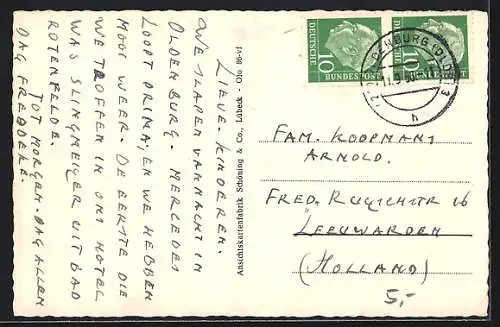 LIEVE KINDEREN.
WE SLAPEN VANNACHT IN
OLDENBURG. MERCEDES
LOOPT PRIMA, EN WE HEBBEN
MOOI WEER. DE EERSTE DIE
WE TROFFEN IN ONS HOTEL
WAS SLINGMEIJER UIT BAD
ROTENFELDE.
TOT MORGEN. DAG ALLEN
DAG FREDDEKE.
Ansichtskartenfabrik Schöning & Co., Lübeck - Olo 86-vf
DEUTSCHE
BUNDESPOST
10
DEUTSCHE
BUNDESPOST
10
OLDENBURG (OLDB)
FAM. KOOPMANS
ARNOLD.
FRED. RUYSCHSTR 16
LEEUWARDEN.
(HOLLAND)
5,-